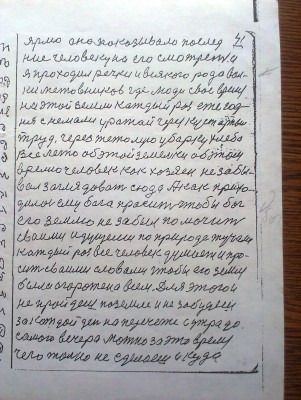 41
ярмо оно показывало послед
ние человеку на его смотреть и
я проходил речки и всякого рода
где люди свое время
на этой земли каждый раз его год
снемали урожай
труд, через тетолую уборку хлеба
все лето об этой земельки об этом
время человек как хозяен не забы-
вал заглядовать сюда А как прихо-
дилось ему бога просить чтобы бог
его землю не забыл помочить
своими идущеми по природе тучами
каждый раз все человек думает и про-
сит своими словами чтобы его земля
была огорожена всем. Для этого и
не пройдеш по земле и не забудеш
за каждой ден на перечете с утра до
самого вечера можно за это время
чего только не сделаеш и куда